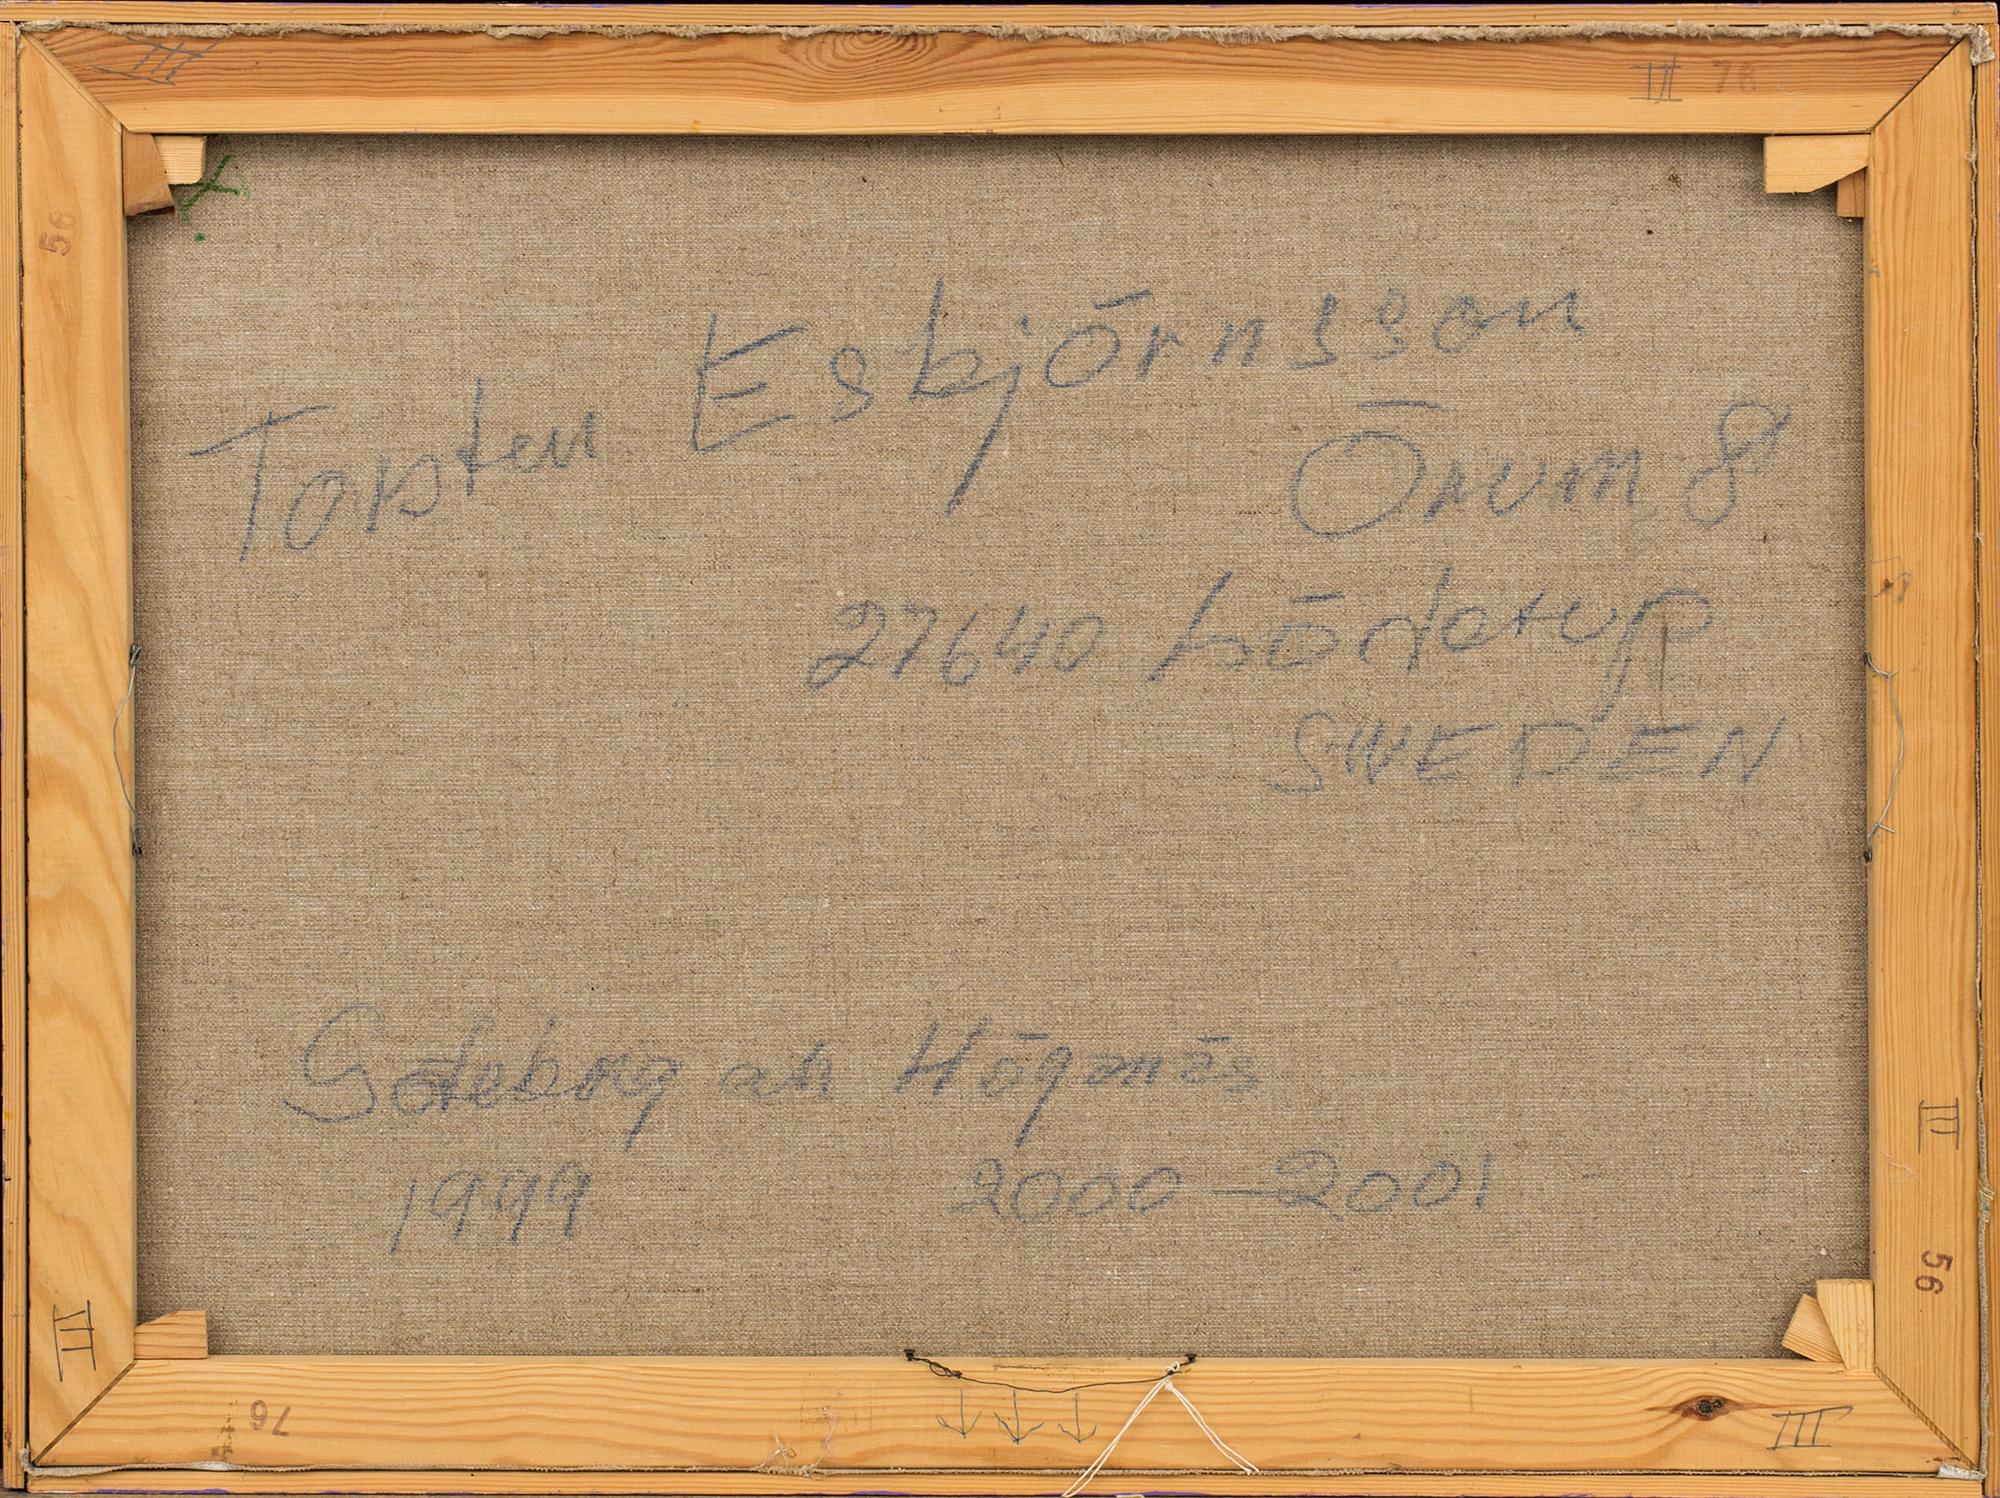 III
III 76
56
Torsten Esbjörnsson
Örum 8
27640 Löderup
SWEDEN
Göteborg
1999
2000-2001
III
56
III
76
III